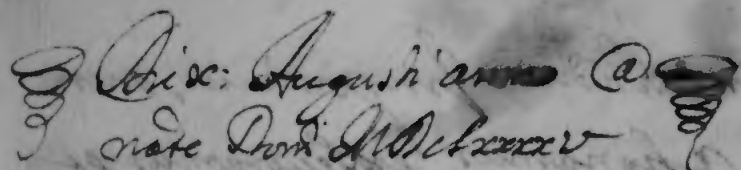 Brix: Augusti anno @
nãte Domĩ MDclxxxxv